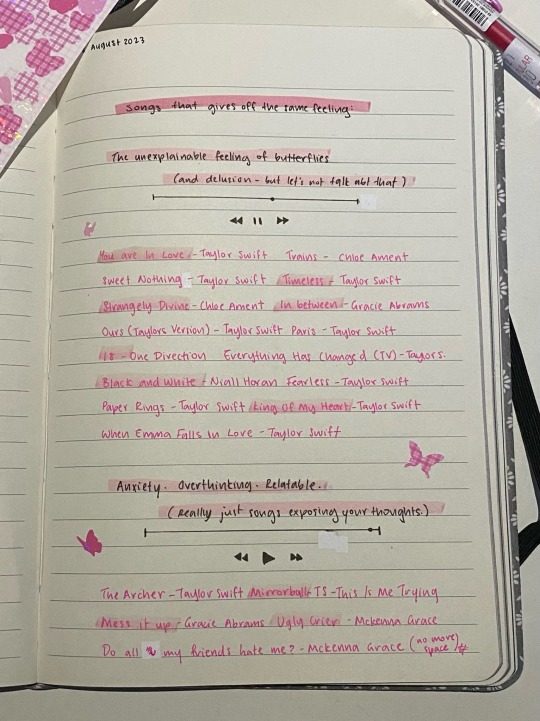 August 2023
Songs that gives off the same feeling:
The unexplainable feeling of butterflies
(and delusion - but let's not talk abt that)
You are In Love - Taylor Swift Trains - Chloe Ament
Sweet Nothing - Taylor Swift Timeless - Taylor Swift
Strangely Divine - Chloe Ament In between - Gracie Abrams
Ours (Taylors Version) - Taylor Swift Paris - Taylor Swift
18 - One Direction Everything Has Changed (TV) - Taylor S.
Black and White - Niall Horan Fearless - Taylor Swift
Paper Rings - Taylor Swift King Of My Heart - Taylor Swift
When Emma Falls In Love - Taylor Swift
Anxiety. Overthinking. Relatable.
(Really just songs exposing your thoughts.)
The Archer - Taylor Swift Mirrorball - TS - This Is Me Trying
Mess it up - Gracie Abrams Ugly Crier - Mckenna Grace
Do all my friends hate me? - Mckenna Grace (no more space)